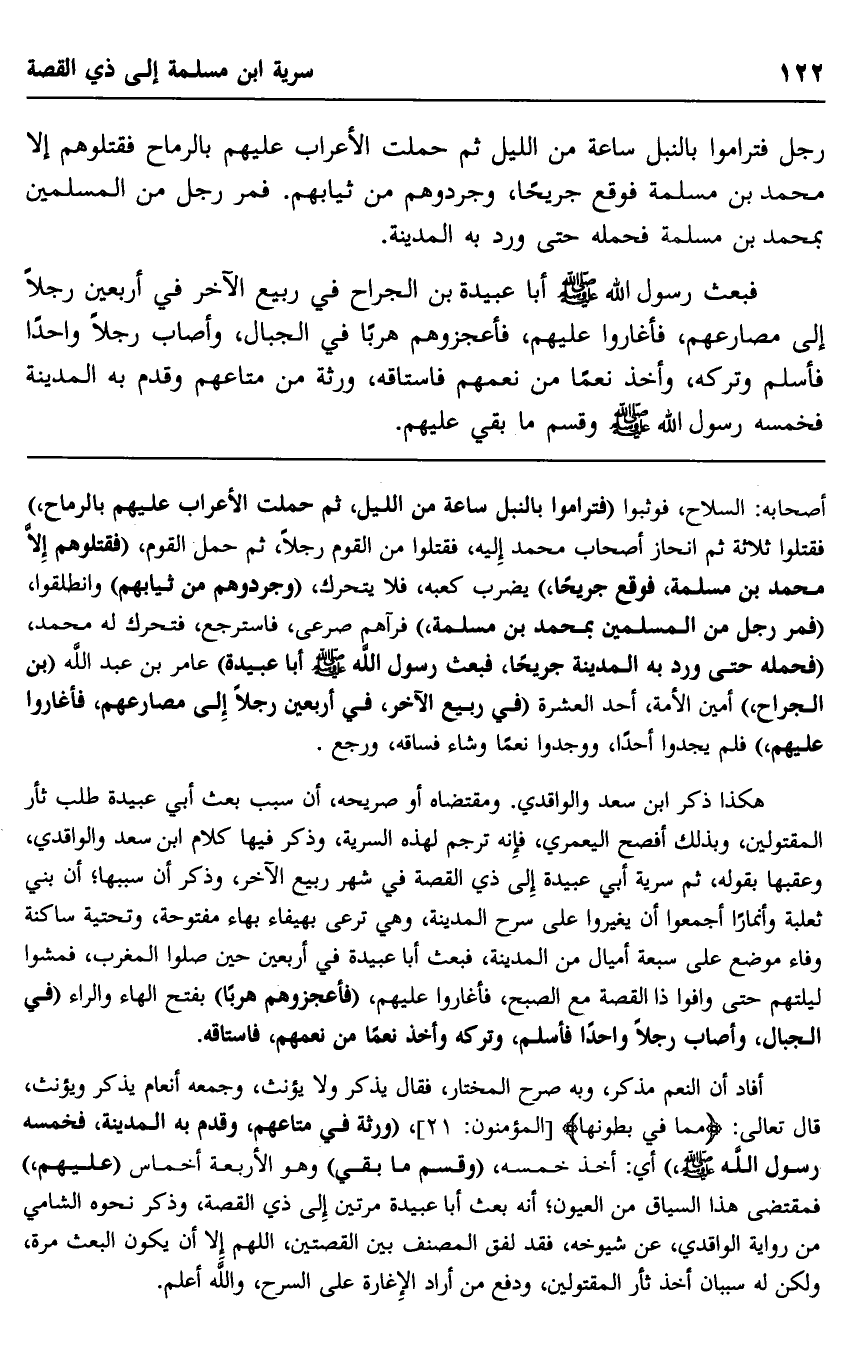 ١٢٢ سرية ابن مسلمة إلى ذي القصة
رجل فتراموا بالنبل ساعة من الليل ثم حملت الأعراب عليهم بالرماح فقتلوهم إلا
محمد بن مسلمة فوقع جريحًا، وجردوهم من ثيابهم. فمر رجل من المسلمين
بمحمد بن مسلمة فحمله حتى ورد به المدينة.
فبعث رسول الله ﷺ أبا عبيدة بن الجراح في ربيع الآخر في أربعين رجلاً
إلى مصارعهم، فأغاروا عليهم، فأعجزوهم هربًا في الجبال، وأصاب رجلاً واحدًا
فأسلم وتركه، وأخذ نعمًا من نعمهم فاستاقه، ورثة من متاعهم وقدم به المدينة
فخمسه رسول الله ﷺ وقسم ما بقي عليهم.
أصحابه: السلاح، فوثبوا (فتراموا بالنبل ساعة من الليل، ثم حملت الأعراب عليهم بالرماح،)
فقتلوا ثلاثة ثم انحاز أصحاب محمد إليه، فقتلوا من القوم رجلاً، ثم حمل القوم، (فقتلوهم إلاَّ
محمد بن مسلمة، فوقع جريحًا،) يضرب كعبه، فلا يتحرك، (وجردوهم من ثيابهم) وانطلقوا،
(فمر رجل من المسلمين بمحمد بن مسلمة،) فرآهم صرعى، فاسترجع، فتحرك له محمد،
(فحمله حتى ورد به المدينة جريحًا، فبعث رسول اللَّه ﷺ أبا عبيدة) عامر بن عبد اللَّه (بن
الجراح،) أمين الأمة، أحد العشرة (في ربيع الآخر، في أربعين رجلاً إلى مصارعهم، فأغاروا
عليهم،) فلم يجدوا أحدًا، ووجدوا نعمًا وشاء فساقه، ورجع .
هكذا ذكر ابن سعد والواقدي. ومقتضاه أو صريحه، أن سبب بعث أبي عبيدة طلب ثأر
المقتولين، وبذلك أفصح اليعمري، فإنه ترجم لهذه السرية، وذكر فيها كلام ابن سعد والواقدي،
وعقبها بقوله، ثم سرية أبي عبيدة إلى ذي القصة في شهر ربيع الآخر، وذكر أن سببها؛ أن بني
ثعلبة وأنمارًا أجمعوا أن يغيروا على سرح المدينة، وهي ترعى بهيفاء بهاء مفتوحة، وتحتية ساكنة
وفاء موضع على سبعة أميال من المدينة، فبعث أبا عبيدة في أربعين حين صلوا المغرب، فمشوا
ليلتهم حتى وافوا ذا القصة مع الصبح، فأغاروا عليهم، (فأعجزوهم هربًا) بفتح الهاء والراء (في
الجبال، وأصاب رجلاً واحدًا فأسلم، وتركه وأخذ نعمًا من نعمهم، فاستاقه.
أفاد أن النعم مذكر، وبه صرح المختار، فقال يذكر ولا يؤنث، وجمعه أنعام يذكر ويؤنث،
قال تعالى: ﴿مما في بطونها﴾ [المؤمنون: ٢١]، (ورثة في متاعهم، وقدم به المدينة، فخمسه
رسول اللَّه ﷺ،) أي: أخذ خمسه، (وقسم ما بقي) وهو الأربعة أخماس (عليهم،)
فمقتضى هذا السياق من العيون؛ أنه بعث أبا عبيدة مرتين إلى ذي القصة، وذكر نحوه الشامي
من رواية الواقدي، عن شيوخه، فقد لفق المصنف بين القصتين، اللهم إلا أن يكون البعث مرة،
ولكن له سببان أخذ ثأر المقتولين، ودفع من أراد الإغارة على السرح، واللَّه أعلم.